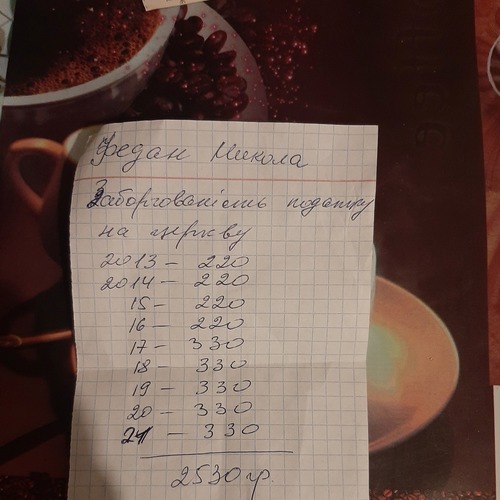 Федан Микола
Заборгованість податку
на церкву
2013 - 220
2014 - 220
15 - 220
16 - 220
17 - 330
18 - 330
19 - 330
20 - 330
21 - 330
2530 гр.